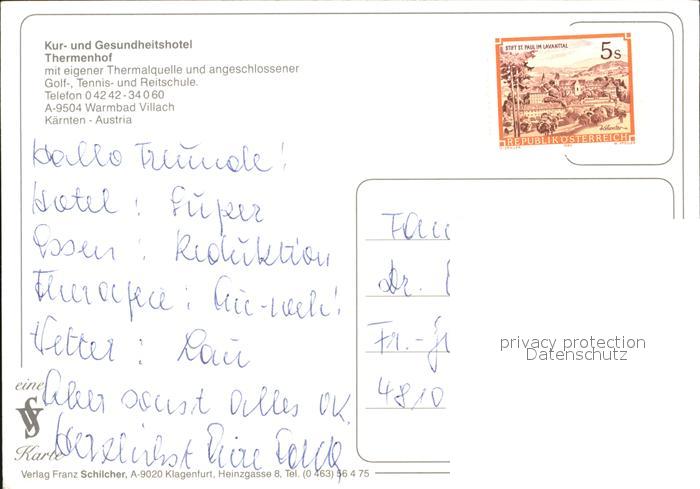 Kur- und Gesundheitshotel
Thermenhof
mit eigener Thermalquelle und angeschlossener
Golf-, Tennis- und Reitschule.
Telefon 0 42 42 - 34 0 60
A-9504 Warmbad Villach
Kärnten - Austria
STIFT ST. PAUL IM LAVANTTAL
5s
REPUBLIK ÖSTERREICH
Hallo Freunde!
Hotel: Super
Essen: Reduktion
Therapie: Au-weh!
Wetter: Lau
Aber sonst alles OK
Herzlichst Eure
Fam
Dr.
Fr.-
4810
privacy protection
Datenschutz
eine
Karte
Verlag Franz Schilcher, A-9020 Klagenfurt, Heinzgasse 8, Tel. (0 463) 56 4 75